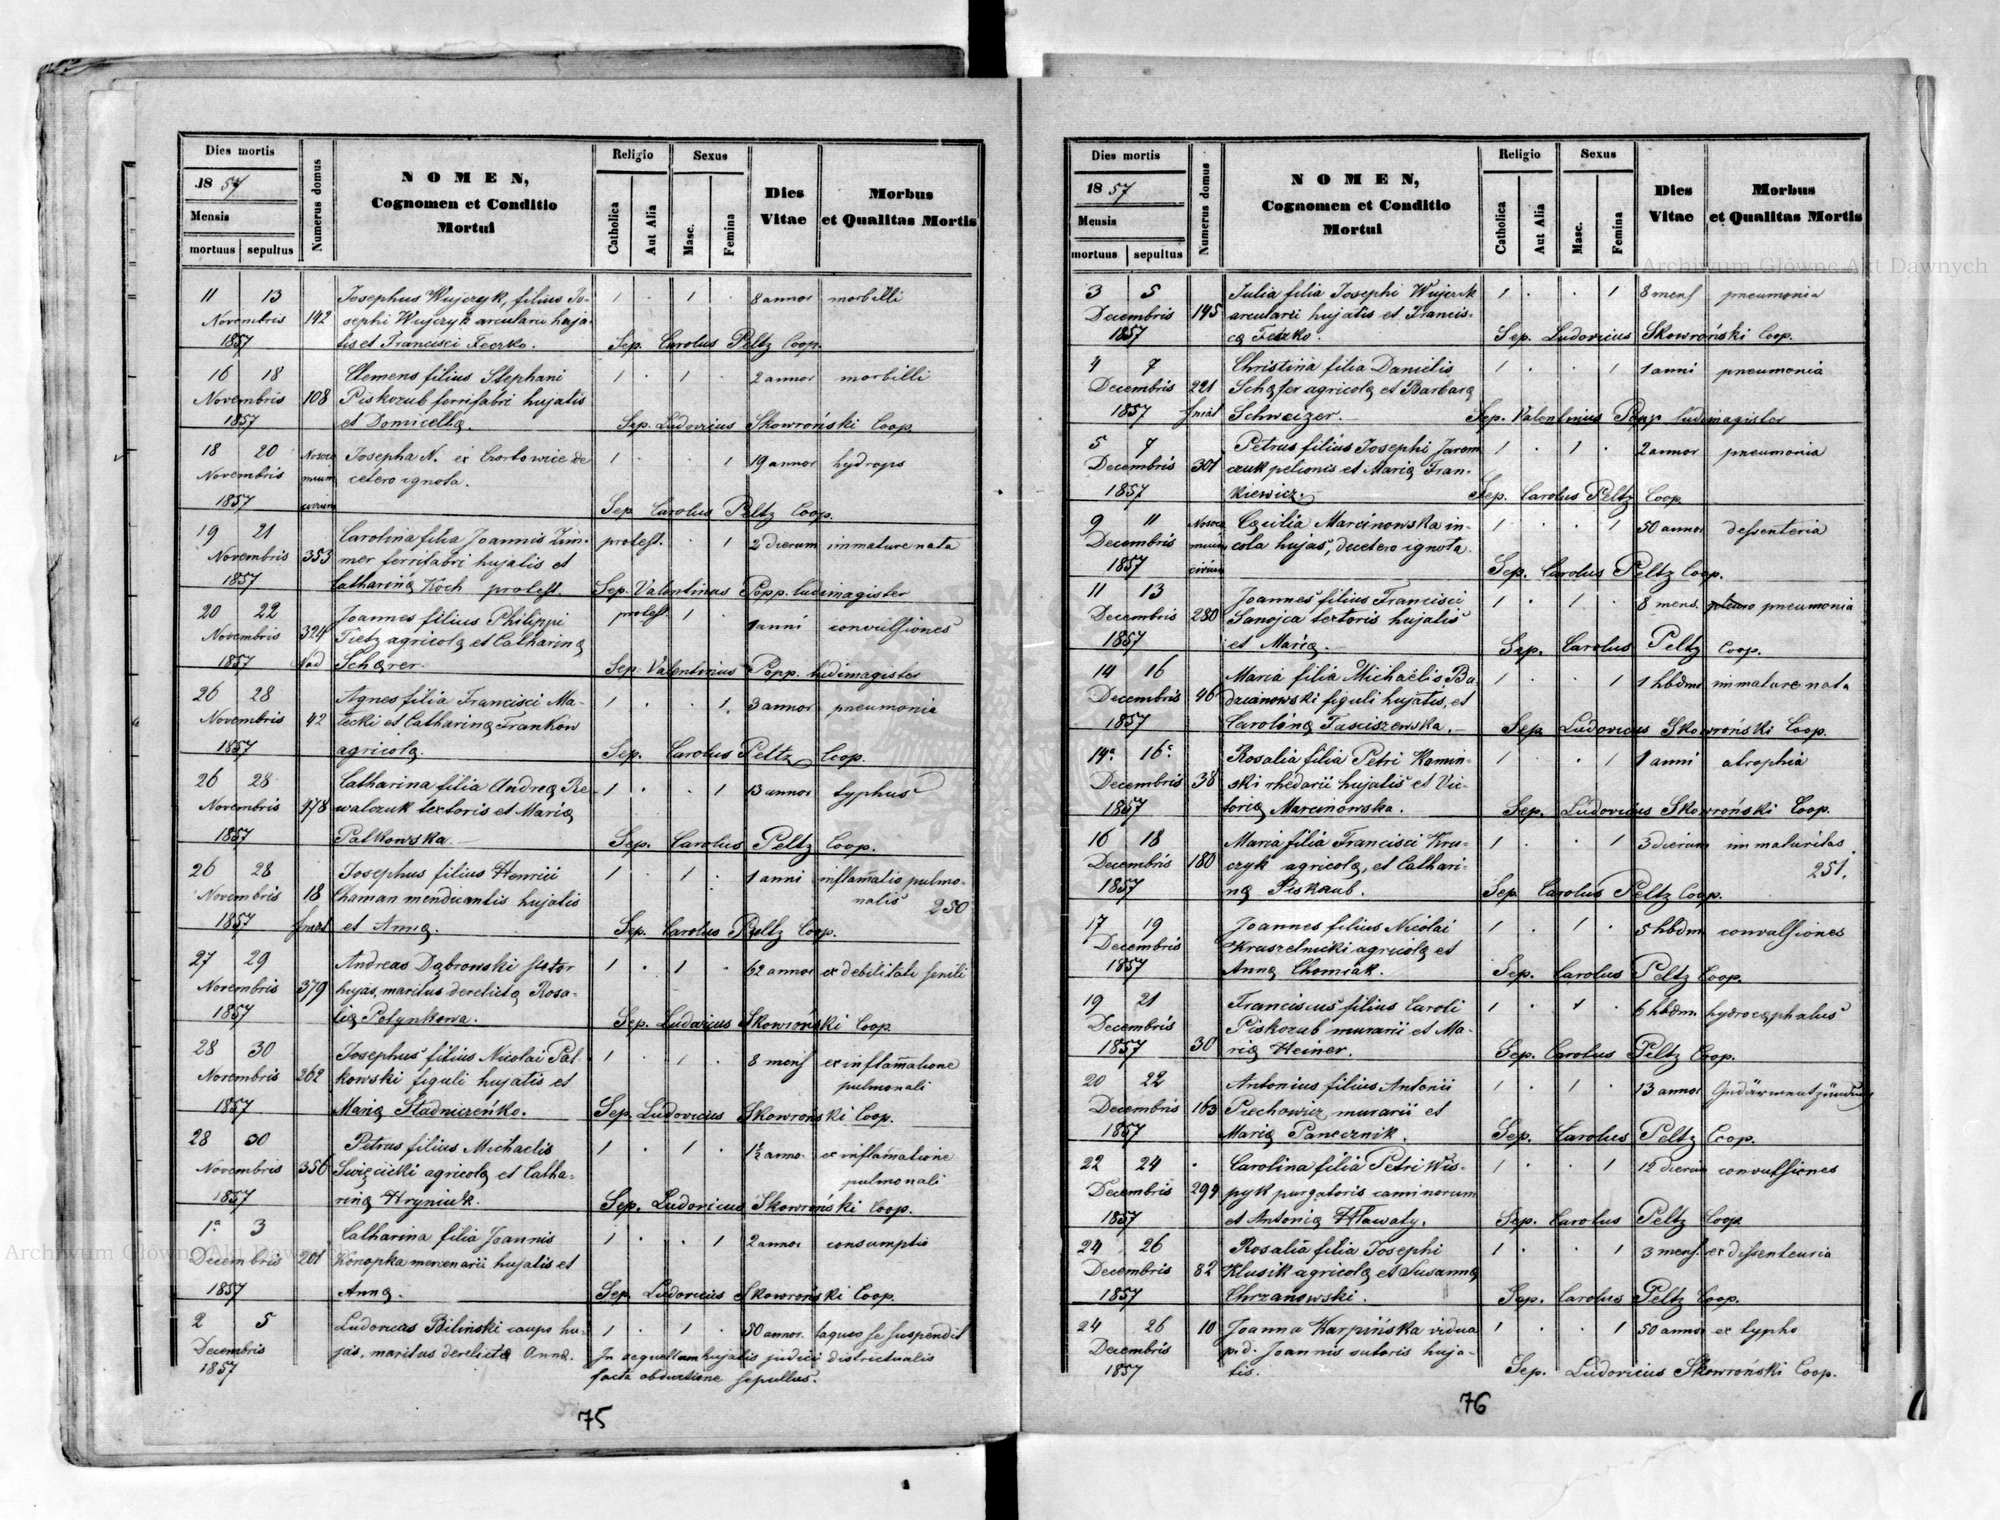 Dies mortis
1857
Mensis
mortuus sepultus
Numerus domus
NOMEN,
Cognomen et Conditio
Mortui
Religio
Catholica
Aut Alia
Sexus
Masc.
Femina
Dies
Vitae
Morbus
et Qualitas Mortis
11 13 Josephus Wujczyk, filius Jo- 1 . 1 . 8 annor morbilli
Novembris 142 sephi Wujczyk arcularii huja-
1857 tis et Francisci Feczko. Sep. Carolus Peltz Coop.
16 18 Clemens filius Stephani 1 . 1 . 2 annor morbilli
Novembris 108 Piskozub ferrifabri hujatis
1857 et Domicellę. Sep. Ludovicus Skowroński Coop.
18 20 Nosoco Josepha N. ex Czortowice de 1 . . 1 19 annor hydrops
Novembris mium cetero ignota.
1857 civium Sep. Carolus Peltz Coop.
19 21 Carolina filia Joannis Zim- protest. . . 1 2 dierum immature nata
Novembris 353 mer ferrifabri hujatis et
1857 Catharinę Koch protest. Sep. Valentinus Popp. ludimagister
20 22 Joannes filius Philippi protest. 1 . 1 anni convulsiones
Novembris 324 Tietz agricolę et Catharinę
1857 Schęrer. Sep. Valentinus Popp. ludimagister
26 28 Agnes filia Francisci Ma- 1 . . 1. 3 annor pneumonia
Novembris 42 łecki et Catharinę Frankow
1857 agricolę. Sep. Carolus Peltz Coop.
26 28 Catharina filia Andreę Re- 1 . . 1 13 annor typhus
Novembris 478 walczuk textoris et Marię
1857 Palkowska. Sep. Carolus Peltz Coop.
26 28 Josephus filius Henrici 1 . 1 . 1 anni inflam̄atio pulmo-
Novembris 18 Chaman mendicantis hujatis nalis 250
1857 et Annę. Sep. Carolus Peltz Coop.
27 29 Andreas Dąbrowski sutor 1 . 1 . 62 annor ex debilitate senili
Novembris 379 hujas, maritus derelictę Rosa-
1857 lię Połynkowa. Sep. Ludovicus Skowroński Coop.
28 30 Josephus filius Nicolai Pał- 1 . 1 . 8 mens ex inflam̄atione
Novembris 262 kowski figuli hujatis et pulmonali
1857 Marię Stadniczeńko. Sep. Ludovicus Skowroński Coop.
28 30 Petrus filius Michaelis 1 . 1 . 1½ anno ex inflam̄atione
Novembris 356 Swięcicki agricolę et Catha- pulmonali
1857 rinę Hryniuk. Sep. Ludovicus Skowroński Coop.
1ª 3 Catharina filia Joannis 1 . . 1 2 annor consumptio
Decembris 201 Konopka mercenarii hujatis et
1857 Annę. Sep. Ludovicus Skowroński Coop.
2 5 Ludovicus Biliński caupo hu- 1 . 1 . 50 annor. laqueo se suspendit
Decembris jas, maritus derelictę Annę. In sequellam hujatis judicii districtualis
1857 facta obductione sepultus.
75
Dies mortis
1857
Mensis
mortuus sepultus
Numerus domus
NOMEN,
Cognomen et Conditio
Mortui
Religio
Catholica
Aut Alia
Sexus
Masc.
Femina
Dies
Vitae
Morbus
et Qualitas Mortis
3 5 Julia filia Josephi Wujczik 1 . . 1 8 mens pneumonia
Decembris 145 arcularii hujatis et Francis-
1857 cę Feczko. Sep. Ludovicus Skowroński Coop.
4 7 Christina filia Danielis 1 . . 1 1 anni pneumonia
Decembris 221 Schęfer agricolę et Barbarę
1857 Schweizer. Sep. Valentinus Popp ludimagister
5 7 Petrus filius Josephi Jarem 1 . 1 . 2 annor pneumonia
Decembris 301 czuk pelionis et Marię Fran-
1857 kiewicz. Sep. Carolus Peltz Coop
9 11 Nosoco Cęcilia Marcinowska in- 1 . . 1 50 annor dessenteria
Decembris mium cola hujas, de cetero ignota.
1857 civium Sep. Carolus Peltz Coop.
11 13 Joannes filius Francisci 1 . 1 . 8 mens. pneumonia
Decembris 280 Sanojca textoris hujatis
1857 et Marię. Sep. Carolus Peltz Coop.
14 16 Maria filia Michaelis Ba 1 . . 1 1 hbdm immature nata
Decembris 46 dzianowski figuli hujatis, et
1857 Carolinę Tasciszewska. Sep. Ludovicus Skowroński Coop.
14ª 16ª Rosalia filia Petri Kamin- 1 . . 1 1 anni atrophia
Decembris 38 ski rhedarii hujatis et Vic-
1857 torię Marcinowska. Sep. Ludovicus Skowroński Coop.
16 18 Maria filia Francisci Kru- 1 . . 1 3 dierum immaturitas
Decembris 180 czyk agricolę, et Cathari- 251.
1857 nę Piskozub. Sep. Carolus Peltz Coop.
17 19 Joannes filius Nicolai 1 . 1 . 5 hbdm convulsiones
Decembris Kruszelnicki agricolę et
1857 Annę Chomiak. Sep. Carolus Peltz Coop.
19 21 Franciscus filius Caroli 1 . 1 . 6 hbdm hydrocęphalus
Decembris Piskozub murarii et Ma-
1857 30 rię Heiner. Sep. Carolus Peltz Coop.
20 22 Antonius filius Antonii 1 . 1 . 13 annor
Decembris 163 Piechowicz murarii et
1857 Marię Panecznik. Sep. Carolus Peltz Coop.
22 24 Carolina filia Petri Wis- 1 . . 1 12 dierum convulsiones
Decembris 299 pyk purgatoris caminorum
1857 et Antonię Hławaty. Sep. Carolus Peltz Coop
24 26 Rosalia filia Josephi 1 . . 1 3 mens. ex dissenteria
Decembris 82 Klusik agricolę et Susannę
1857 Chrzanowski. Sep. Carolus Peltz Coop.
24 26 10 Joanna Karpińska vidua 1 . . 1 50 annor ex typho
Decembris p. d. Joannis sutoris huja-
1857 tis. Sep. Ludovicus Skowroński Coop.
76
Archiwum Główne Akt Dawnych
Archiwum Główne Akt Dawnych